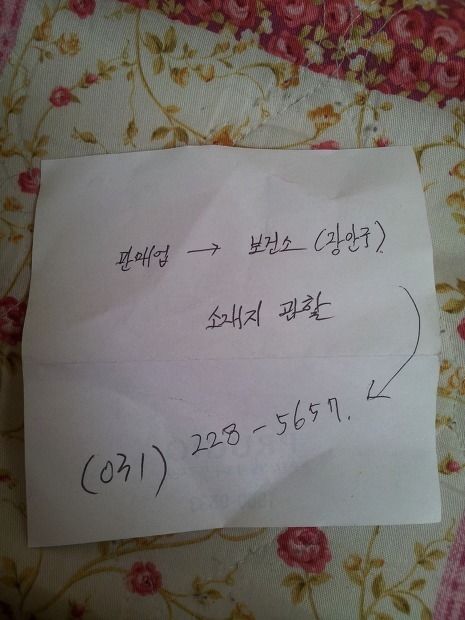 판매업 → 보건소 (장안구)
소재지 관할
(031) 228-5657.